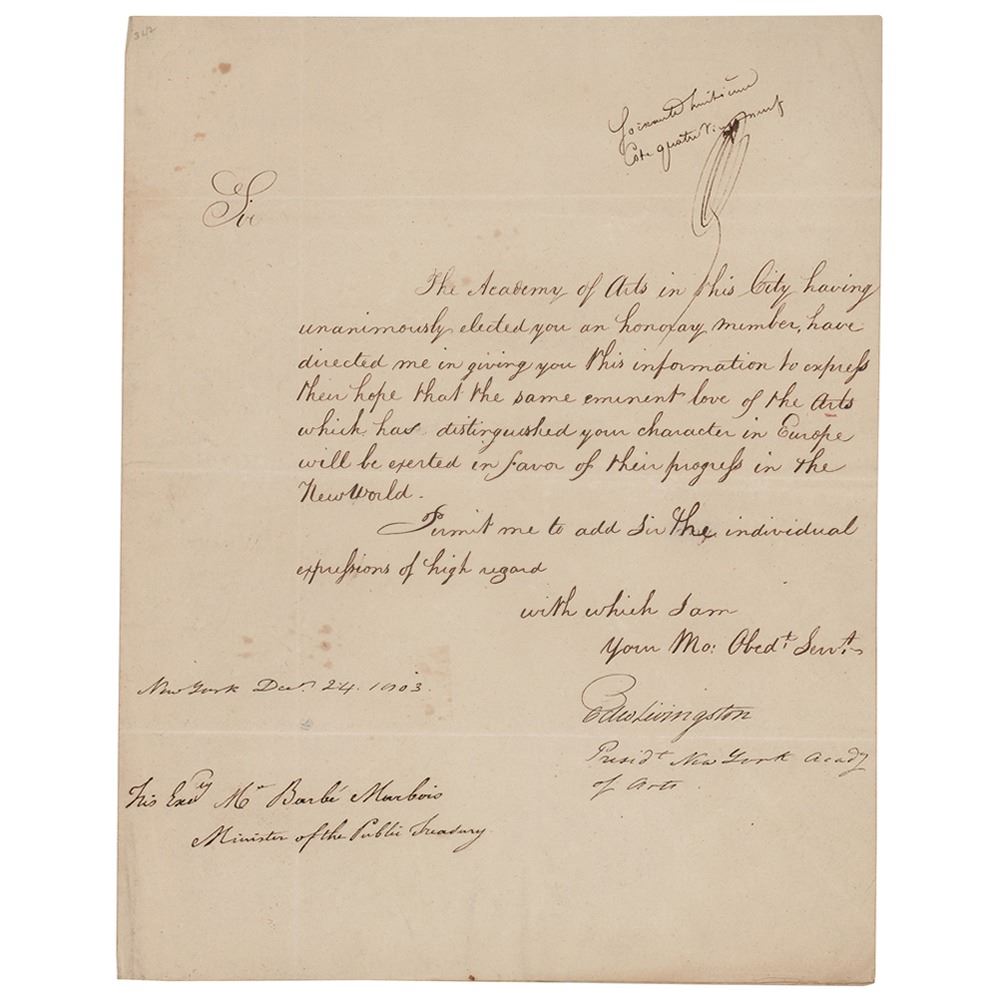 347
Soixante huitieme
Cote quatre vingt neuf
Sir
The Academy of Arts in this City having
unanimously elected you an honorary member, have
directed me in giving you this information to express
their hope that the same eminent love of the Arts
which has distinguished your character in Europe
will be exerted in favor of their progress in the
New World.
Permit me to add Sir the individual
expressions of high regard
with which I am
Your Mo: Obedt Servt
New York Decr. 24. 1803.
Edw Livingston
Presidt New York Acady
of Arts
His Excy Mr Barbé Marbois
Minister of the Public Treasury